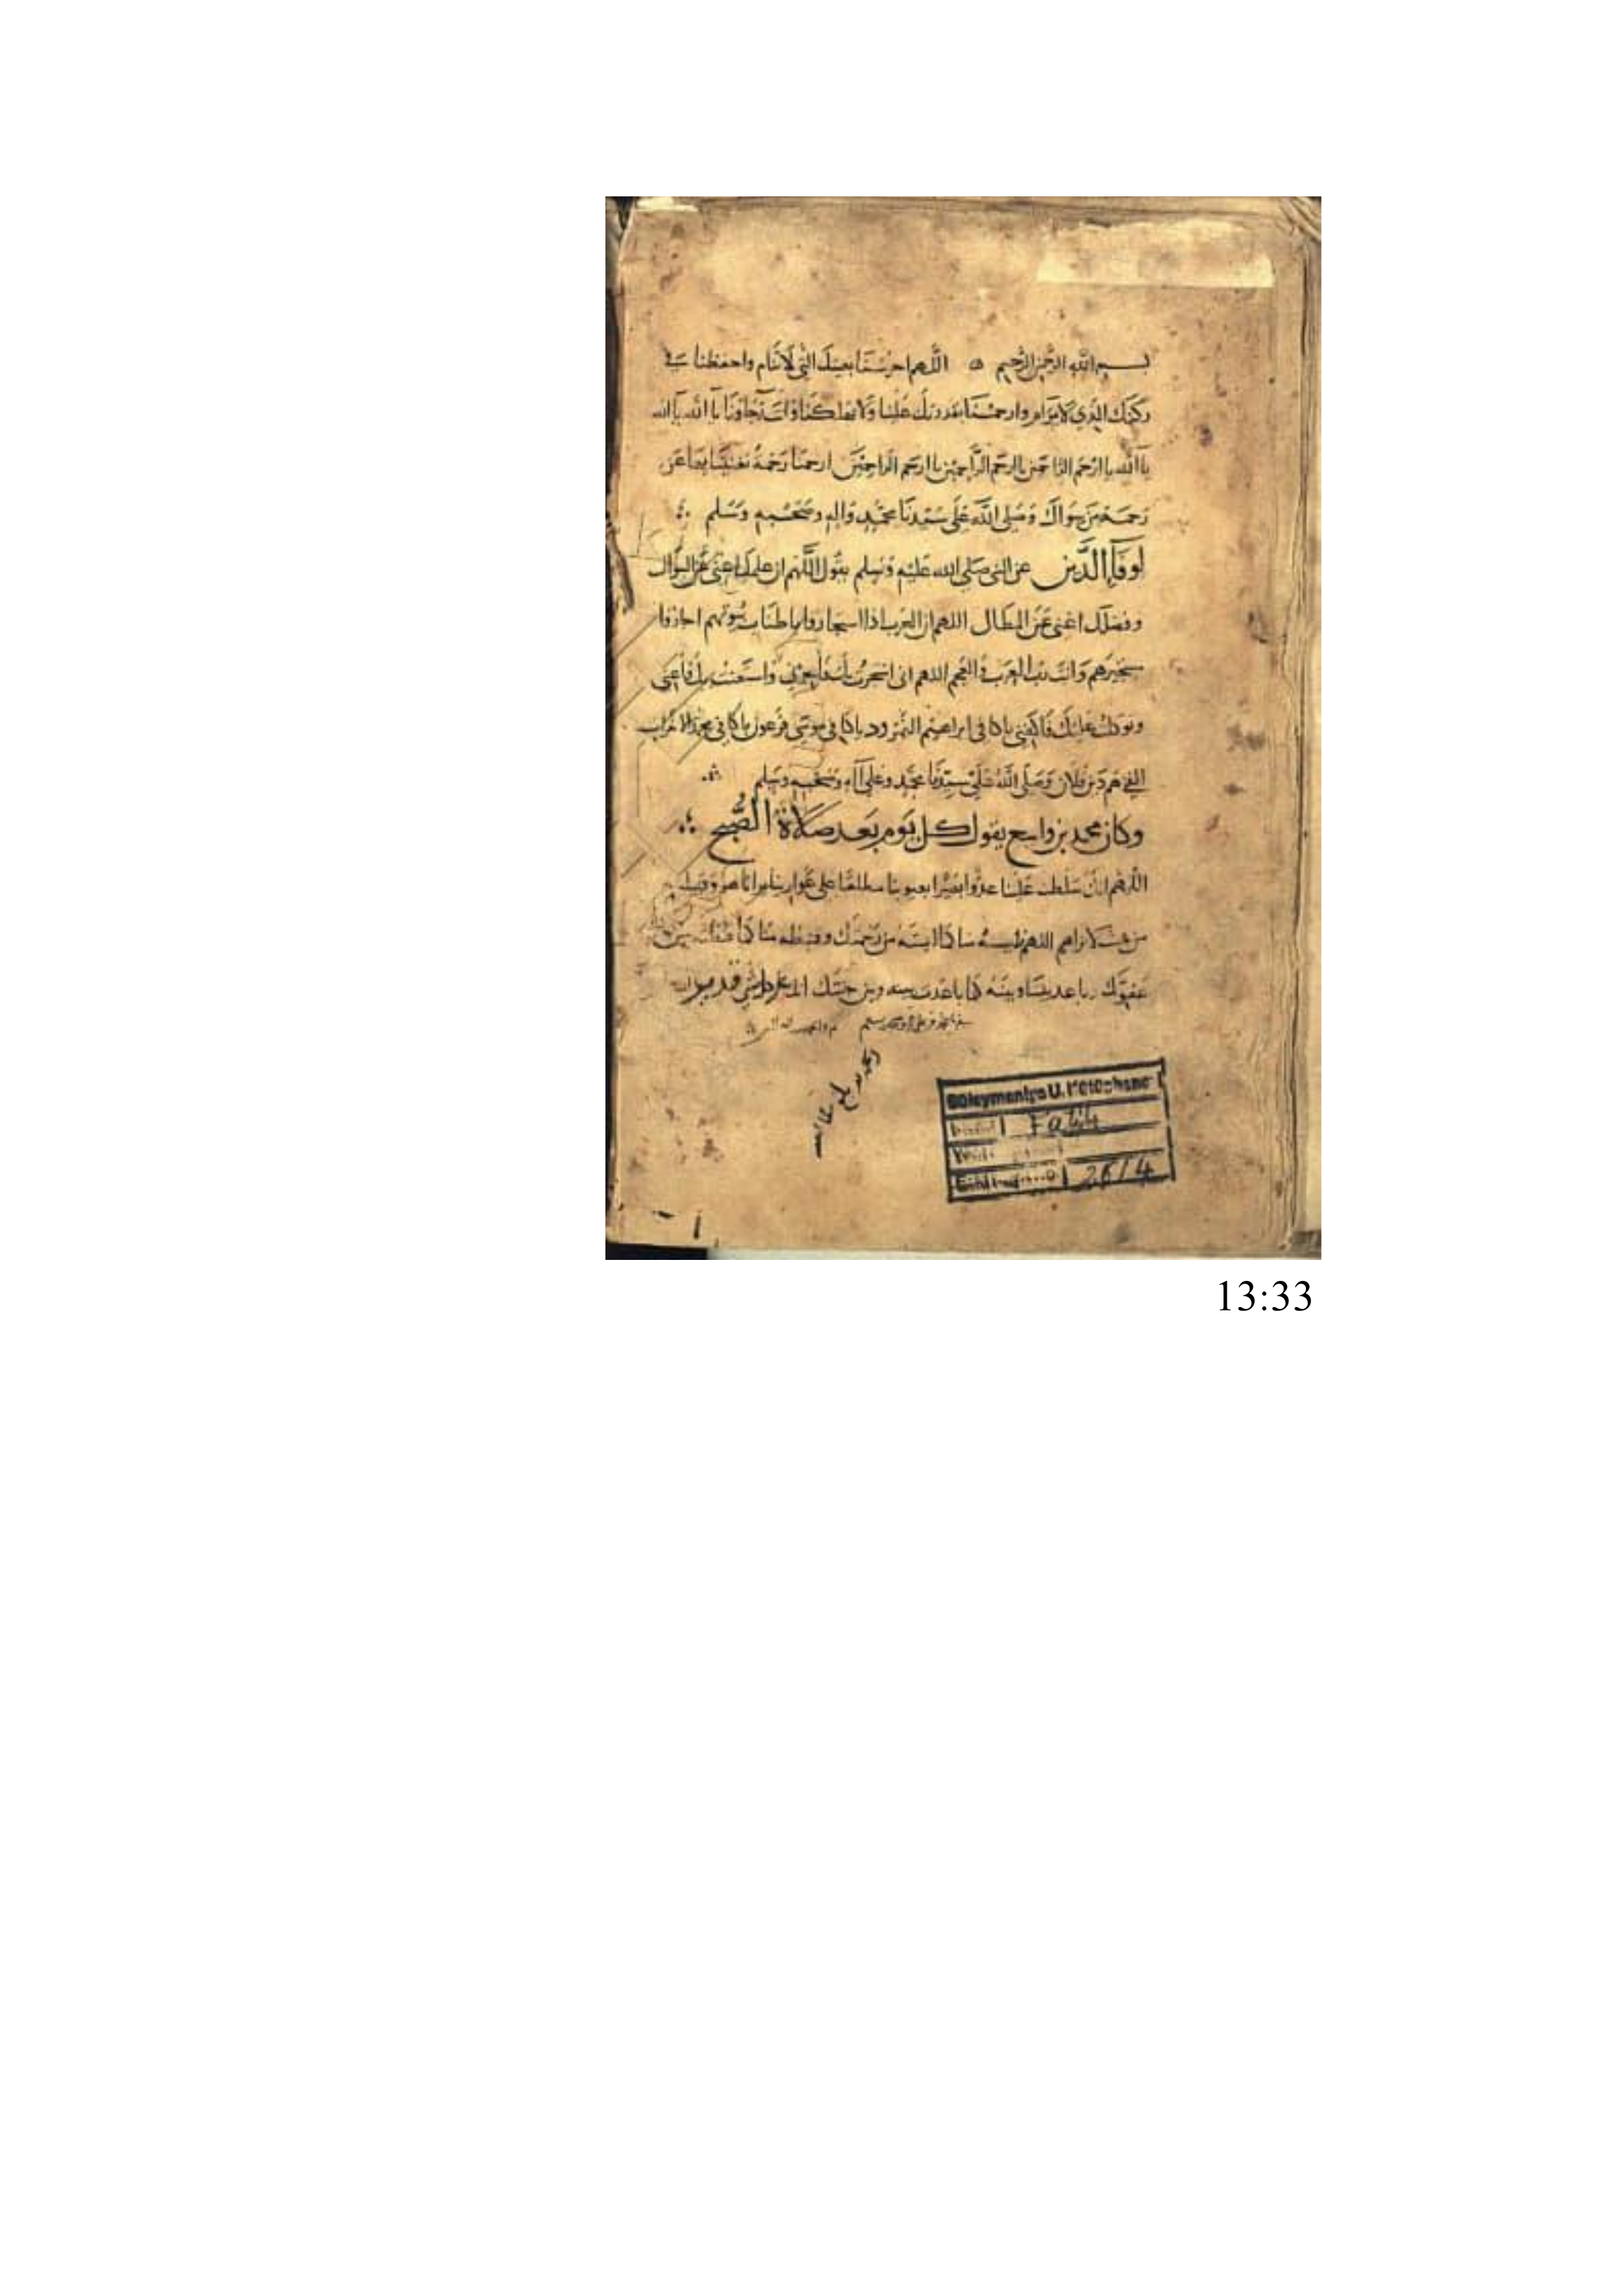 بسم الله الرحمن الرحيم ۞ اللهم احرسنا بعينك التي لا تنام واحفظنا في
ركنك الذي لا يرام وارحمنا بقدرتك علينا ولا تهلكنا وانت رجاؤنا يا الله يا الله
يا الله يا ارحم الراحمين يا ارحم الراحمين يا ارحم الراحمين ارحمنا رحمة تغنينا بها عن
رحمة من سواك وصلى الله على سيدنا محمد واله وصحبه وسلم
لوفاء الدين عن النبي صلى الله عليه وسلم يقول اللهم ان علمك اغنى عن السؤال
وفضلك اغنى عن المطال اللهم ان العرب اذا استجاروا باطناب بيوتهم اجاروا
مستجيرهم وانت رب العرب والعجم اللهم اني استجرت بك فاجرني واستعنت بك فاعني
وتوكلت عليك فاكفني يا كافي ابراهيم النمرود يا كافي موسى فرعون يا كافي محمد الاحزاب
اكفني هم دين فلان وصلى الله على سيدنا محمد وعلى آله وصحبه وسلم
وكان محمد بن واسع يقول كل يوم بعد صلاة الصبح
اللهم انك سلطت علينا عدوا بصيرا بعيوبنا مطلعا على عوراتنا يرانا هو وقبيله
من حيث لا نراهم اللهم فايسه منا كما ايسته من رحمتك وقنطه منا كما قنطته من
عفوك وباعد بيننا وبينه كما باعدت بينه وبين جنتك انك على كل شي قدير
Süleymaniye U. Kütüphanesi
Fatih
2614
13:33